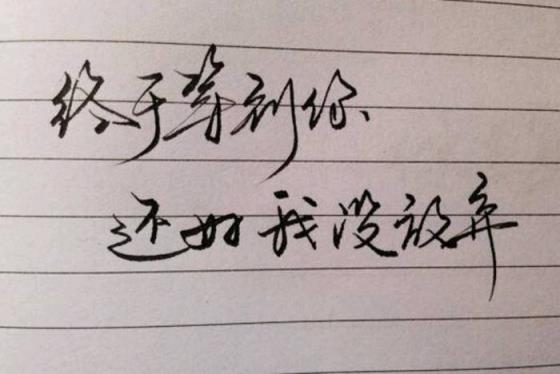 终于等到你、
还好我没放弃